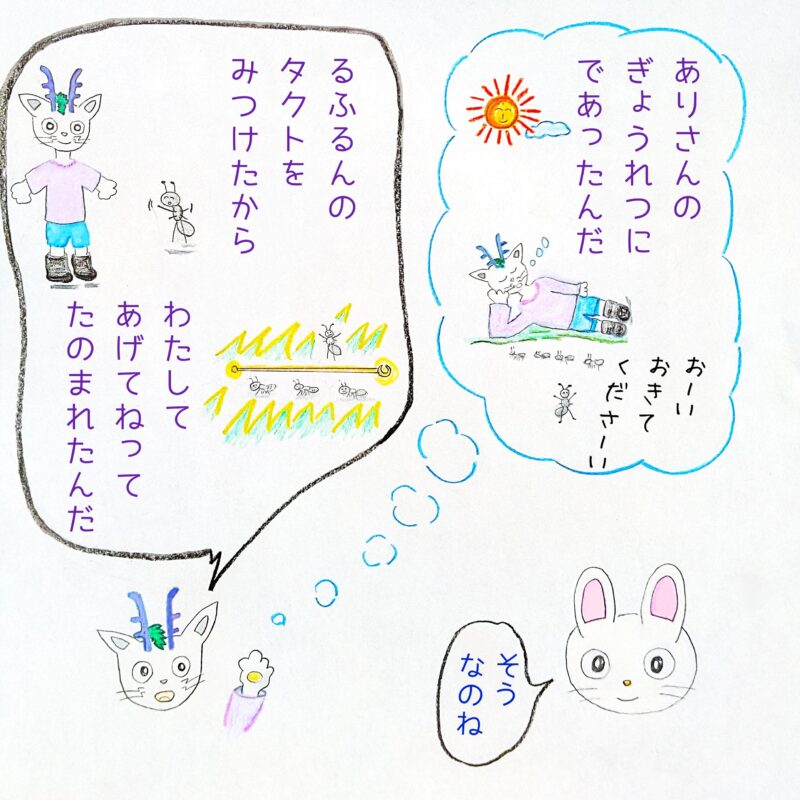 ありさんの
ぎょうれつに
であったんだ
おーい
おきて
くださーい
るふるんの
タクトを
みつけたから
わたして
あげてねって
たのまれたんだ
そう
なのね